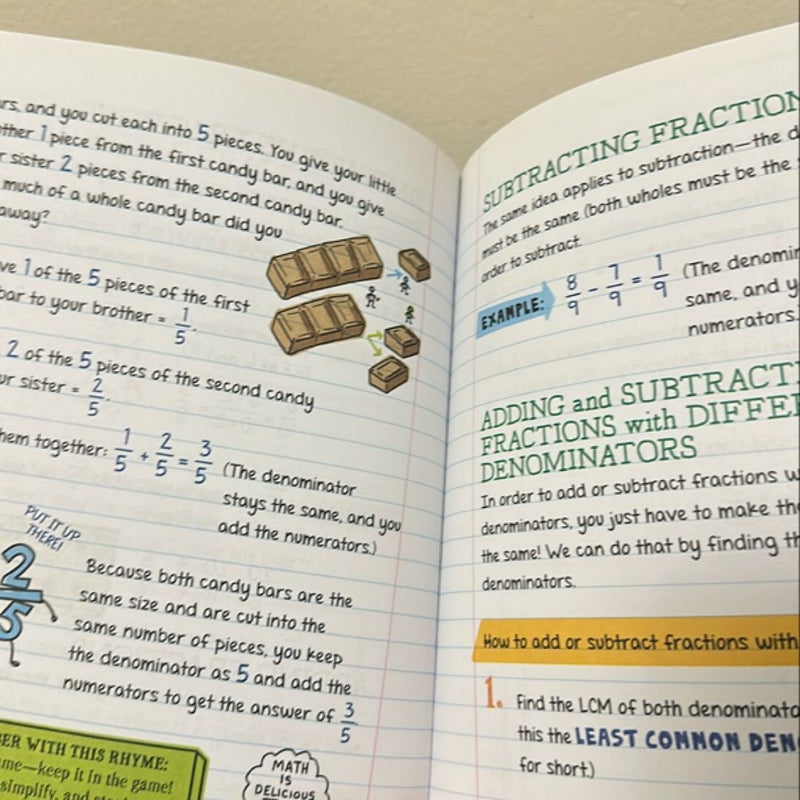 and you cut each into 5 pieces. You give your little
1 piece from the first candy bar, and you give
sister 2 pieces from the second candy bar.
much of a whole candy bar did you
away?
1 of the 5 pieces of the first
bar to your brother = 1/5.
2 of the 5 pieces of the second candy
sister = 2/5.
together: 1/5 + 2/5 = 3/5 (The denominator
stays the same, and you
add the numerators.)
PUT IT UP
THERE!
2/5
Because both candy bars are the
same size and are cut into the
same number of pieces, you keep
the denominator as 5 and add the
numerators to get the answer of 3/5
WITH THIS RHYME:
keep it in the game!
simplify, and
MATH
IS
DELICIOUS
SUBTRACTING
The same idea applies to subtraction—the
must be the same (both wholes must be the
order to subtract.
EXAMPLE: 8/9 - 7/9 = 1/9 (The
same, and
numerators.
ADDING and
FRACTIONS with
DENOMINATORS
In order to add or subtract fractions
denominators, you just have to make
the same! We can do that by finding
denominators.
How to add or subtract fractions with
1. Find the LCM of both
this the LEAST COMMON
for short.)